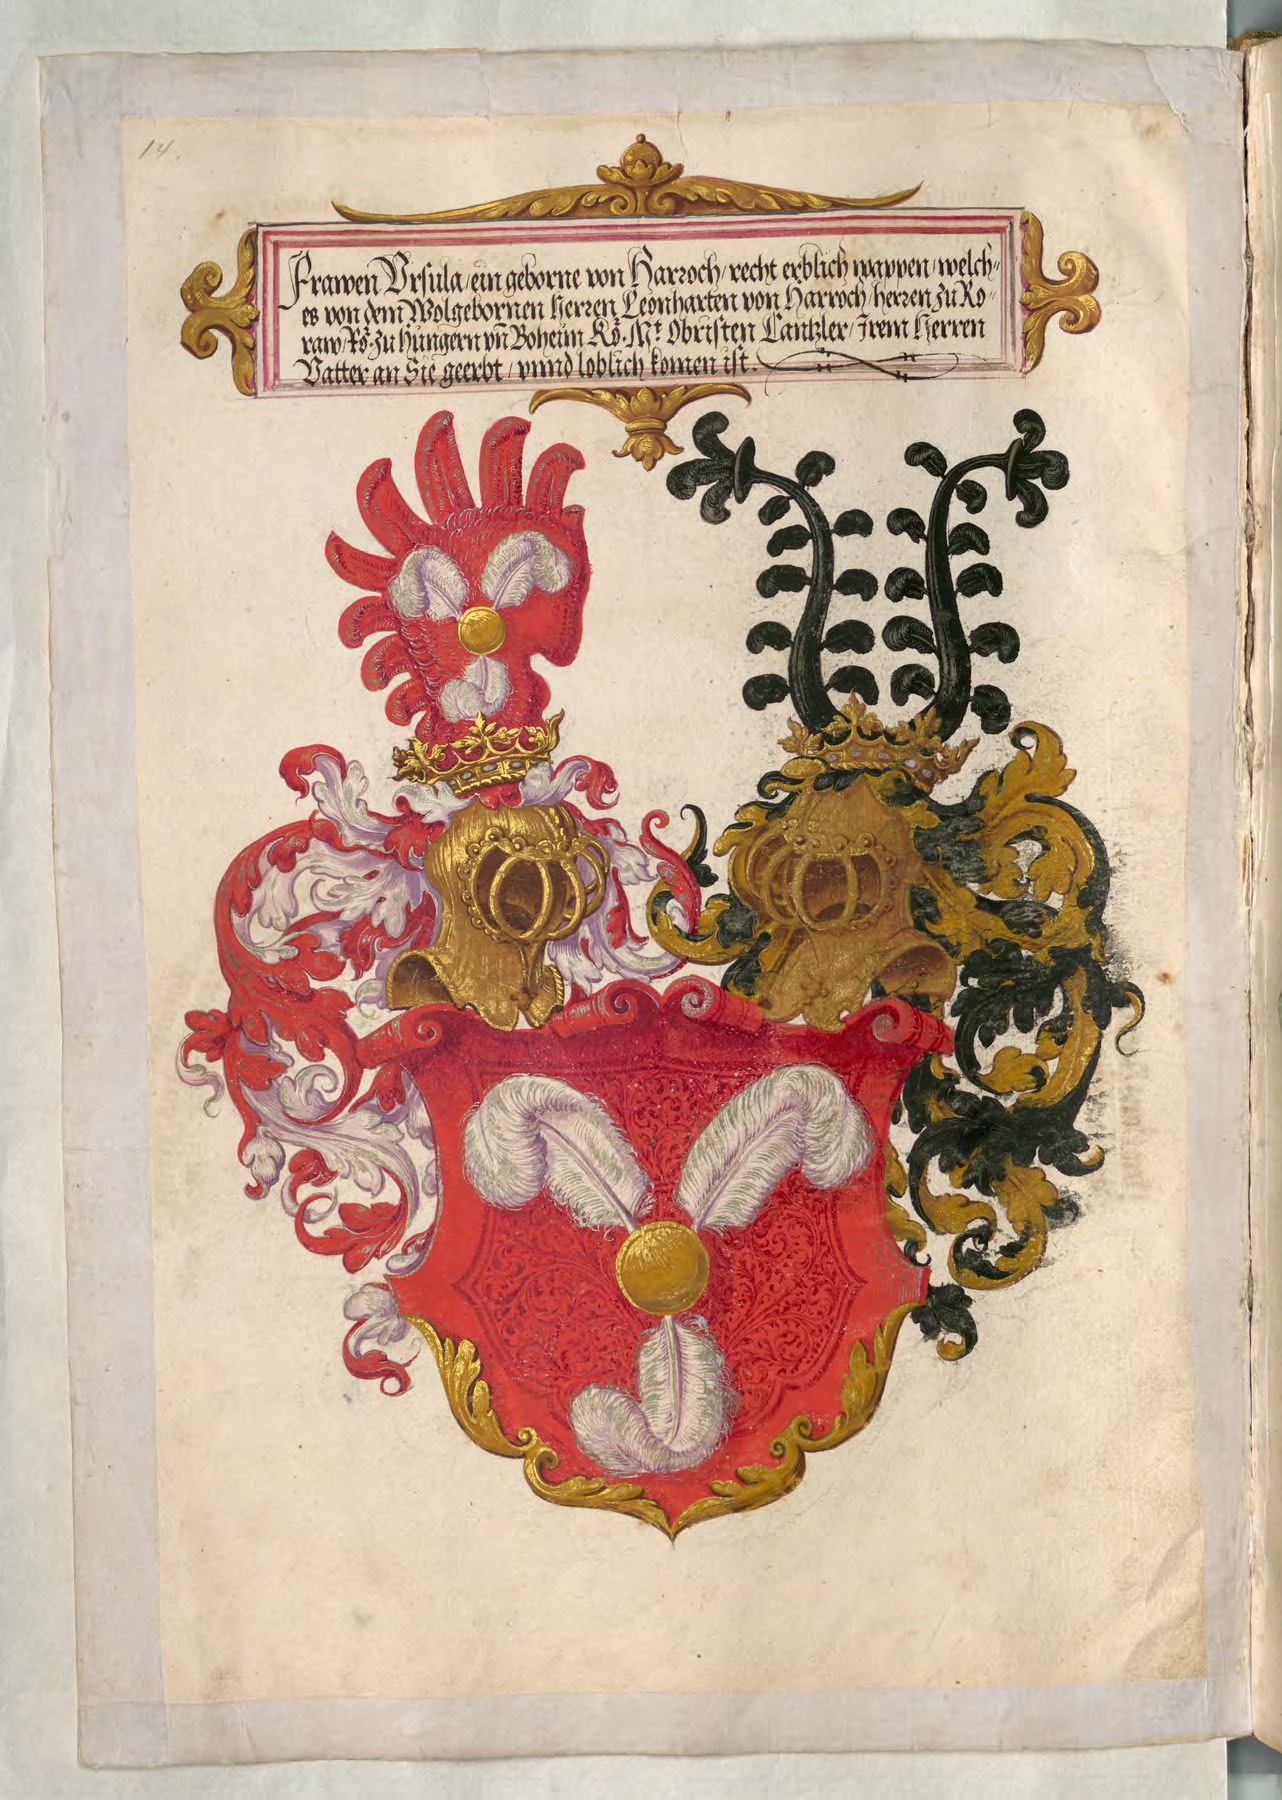 14.
Frawen Vrsula / ein geborne von Harroch / recht erblich wappen / welch=
es von dem Wolgebornen herren Leonharten von Harroch / herren zu Ro=
raw / Rö. zu Hungern vn̄ Boheim Kö. Mt. Obristen Cantzler / Jrem Herren
Vatter an Sie geerbt / vnnd loblich komen ist.